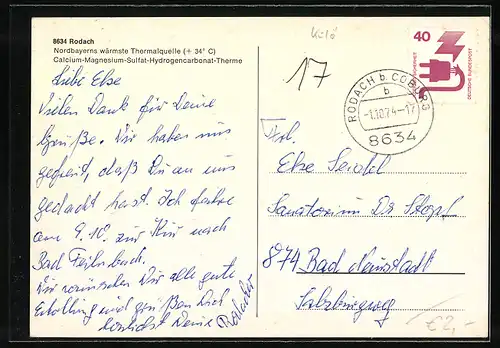 8634 Rodach
Nordbayerns wärmste Thermalquelle (+ 34° C)
Calcium-Magnesium-Sulfat-Hydrogencarbonat-Therme
Liebe Else
Vielen Dank für Deine
Grüße. Wir haben uns
gefreut, daß Du an uns
gedacht hast. Ich fahre
am 9.10. zur Kur nach
Bad Feilnbach.
Wir wünschen Dir alle gute
Erholung und grüßen Dich
herzlichst Deine Rodacher
17
40
DEUTSCHE BUNDESPOST
RODACH b. COBURG
b
-1.10.74-17
8634
Frl.
Else Seidel
Sanatorium Dr. Stopf
874 Bad Neustadt
Salzburgweg
€2,-